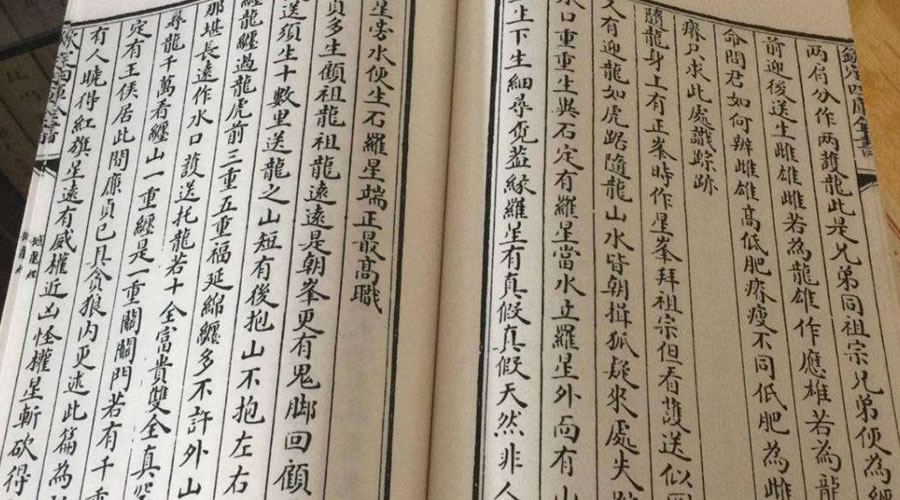 欽定四庫全書
兩肩分作兩護龍此是兄弟同祖宗兄弟便為纏
前迎後送生雌雄雌若為龍雄作應雄若為龍
命問君如何辨雌雄高低肥瘠瘦不同低肥為雌
瘠只求此處識踪跡
隨龍身上有正峯時作星峯拜祖宗但看護送似
人有迎龍如虎踞隨龍山水皆朝揖狐疑來處失
水口重重生異石定有羅星當水立羅星外面有山
上生下生細尋覔蓋緣羅星有真假真假天然非人
星旁水便生石羅星端正最高職
貪多生顧祖龍祖龍遠遠是朝峯更有鬼脚回顧
送須生十數里送龍之山短有後抱山不抱左右
纏龍纏過龍虎前三重五重福延綿纏多不許外山
那堪長遠作水口護送托龍若十全富貴雙全真
尋龍千萬看纏山一重纏是一重關關門若有千重
定有王侯居此間廉貞已具貪狼內更述此篇為
有人曉得紅旗星遠有威權近凶怪權星斬砍得
欽定四庫全書
撼龍經